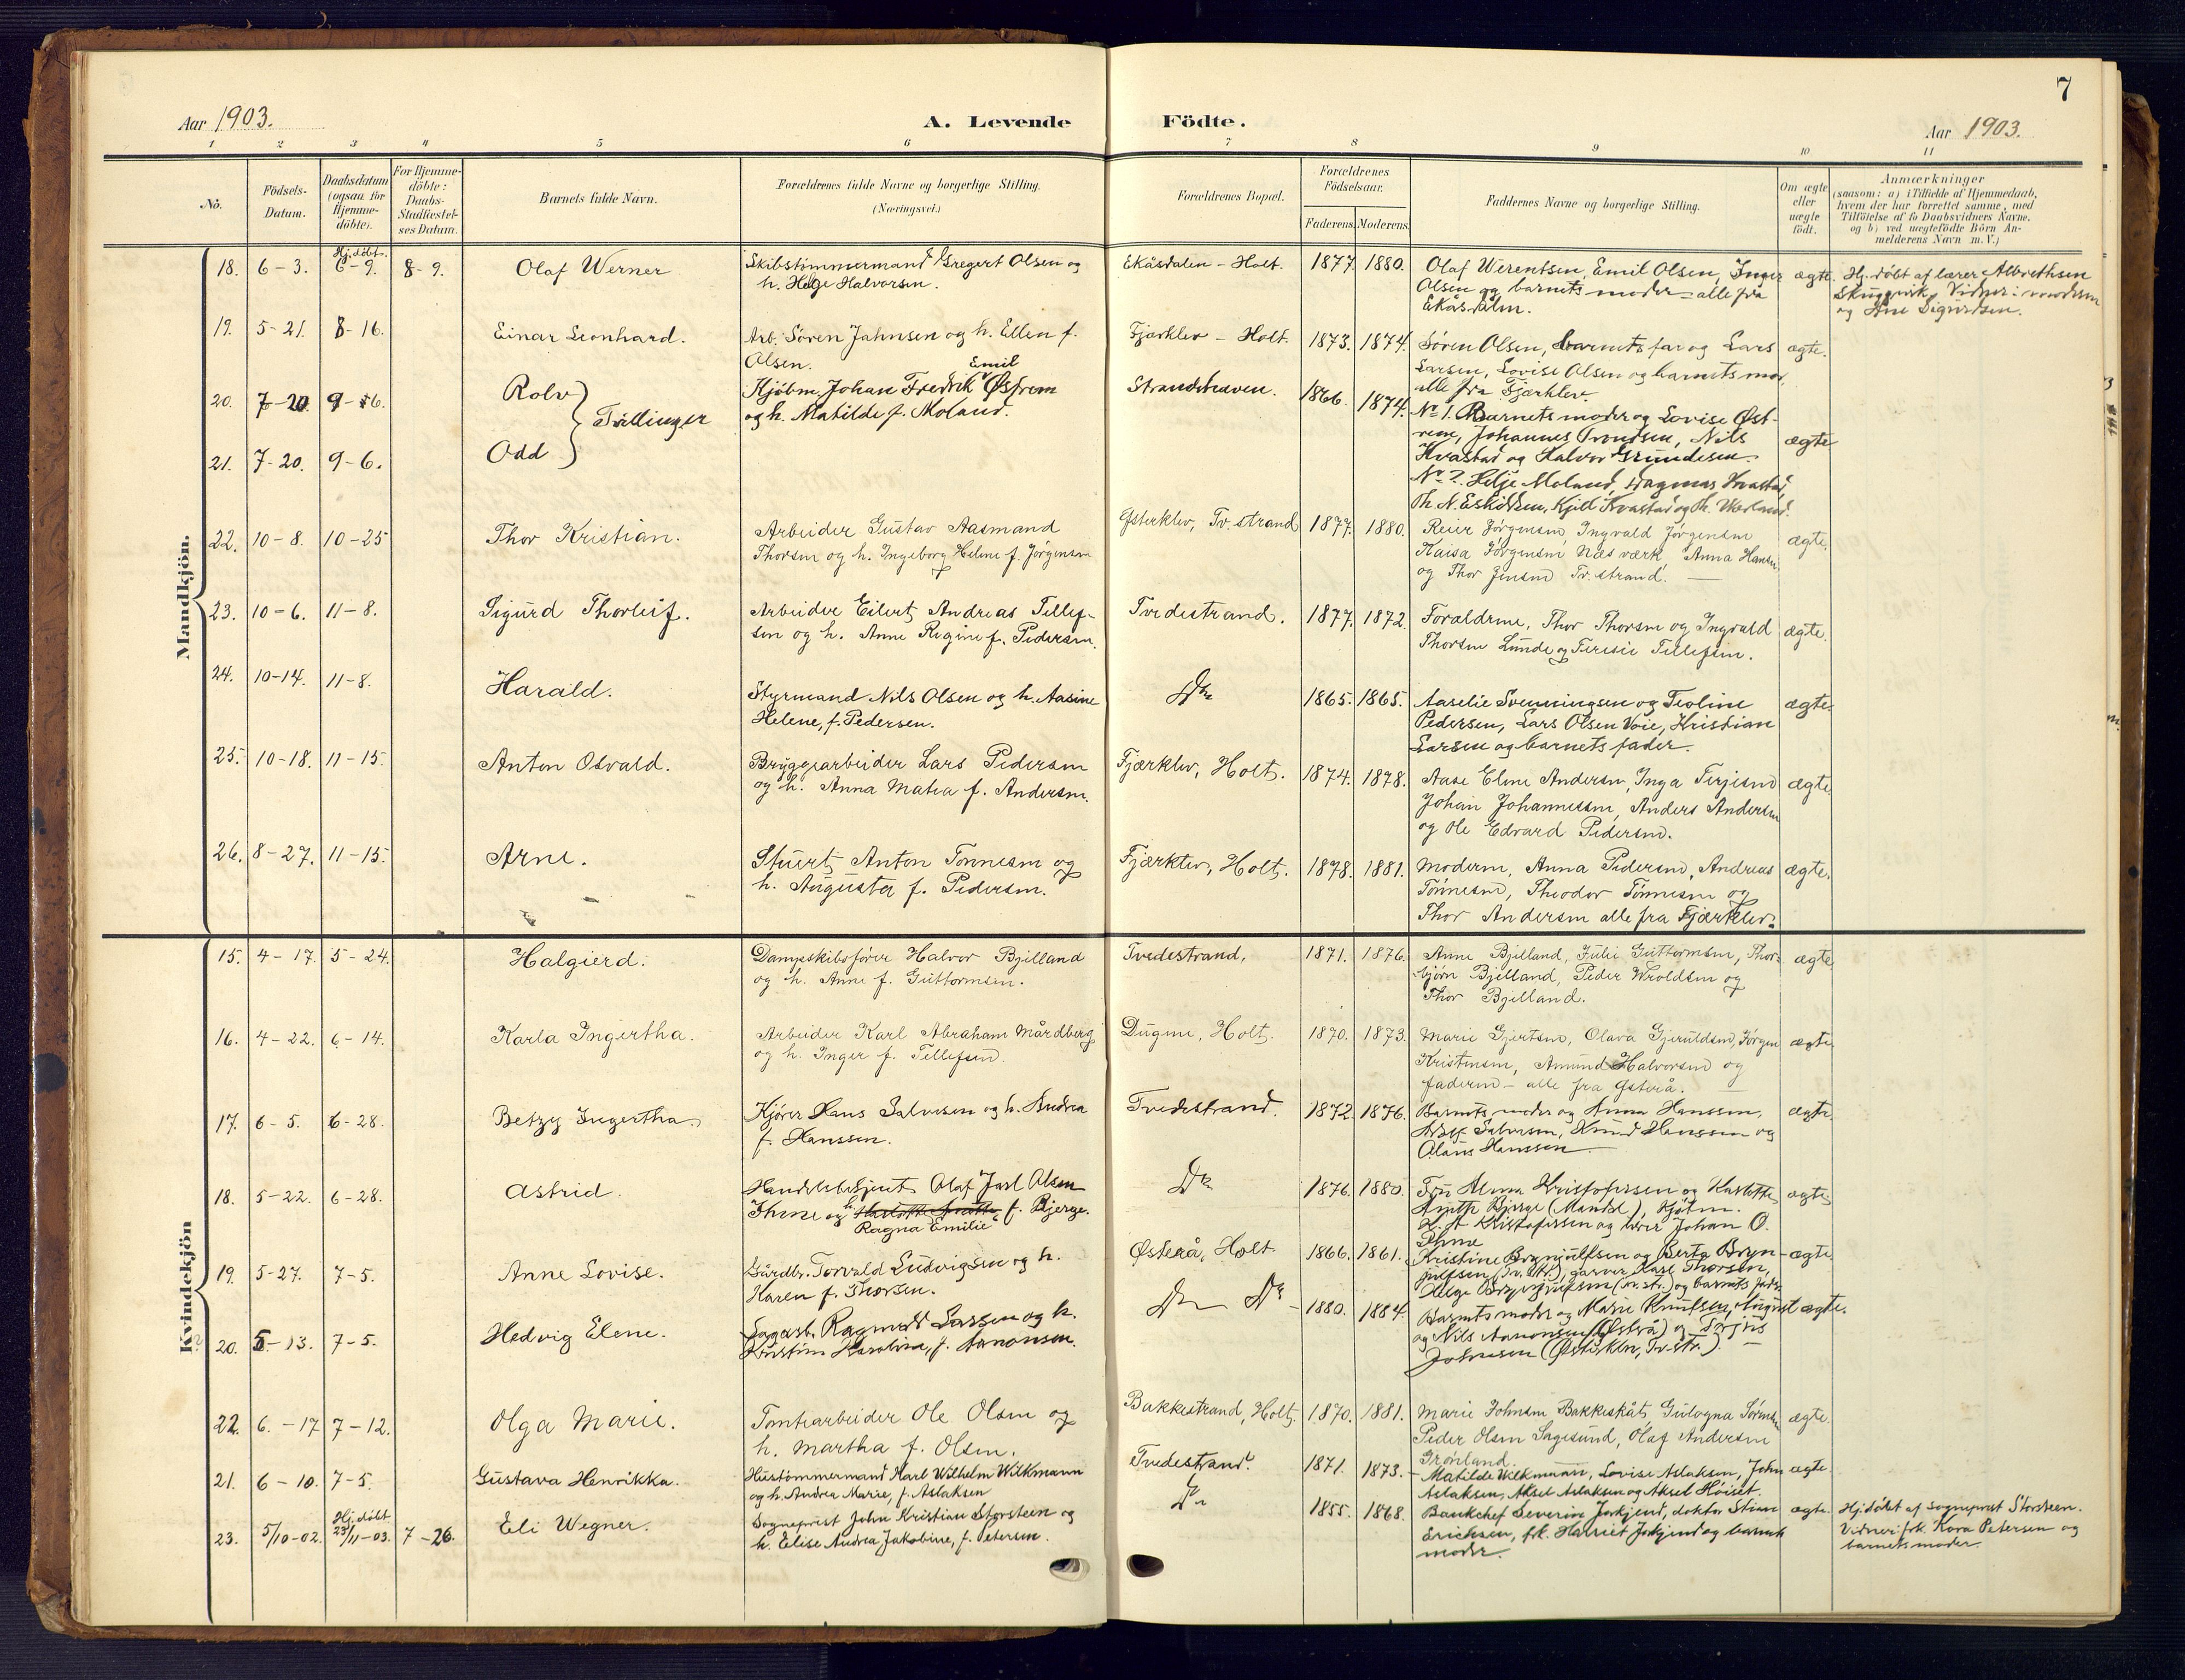 7
Aar 1903. A. Levende Födte. Aar 1903.
1 2 3 4 5 6 7 8 9 10 11
No. Födsels-Datum. Daabsdatum (ogsaa for Hjemme-döbte). For Hjemme-döbte: Daabs-Stadfæstel-ses Datum. Barnets fulde Navn. Forældrenes fulde Navne og borgerlige Stilling. (Næringsvei.) Forældrenes Bopæl. Forældrenes Födselsaar. Faderens. Moderens. Faddernes Navne og borgerlige Stilling. Om ægte eller uægte födt. Anmærkninger (saasom: a) i Tilfælde af Hjemmedaab, hvem der har forrettet samme, med Tilföielse af to Daabsvidners Navne. og b) ved uægtefödte Börn An-melderens Navn m. V.)
Mandkjön.
18. 6-3. Hj. døbt. 6-9. 8-9. Olaf Werner Skibstømmermand Gregert Olsen og Ekåsdalen - Holt. 1877. 1880. Olaf Werentsen, Emil Olsen, Inger ægte. Hj. døbt af lærer Albrethsen
h. Helge Halvorsen. Olsen og barnets moder - alle fra Skuggevik. Vidner: moderen
Ekåsdalen. og Ane Sigurdsen.
19. 5-21. 8-16. Einar Leonhard. Arb. Søren Jahnsen og h. Ellen f. Fjærklev - Holt. 1873. 1874. Søren Olsen, barnets far og Lars ægte.
Olsen. Larsen, Lovise Olsen og barnets mor,
alle fra Fjærklev.
20. 7-20. 9-6. Rolv Tvillinger Kjøbm. Johan Fredrik Emil Østrem Strandstuen. 1866. 1874. No 1. Barnets moder og Lovise Øst-
og h. Matilde f. Moland. rem, Johannes Trondsen, Nils ægte
21. 7-20. 9-6. Odd Kvastad og Halvor Grundesen.
No 2. Helje Moland, Dagmar Kvastad,
Th. N. Eskildsen, Kjell Kvastad og Th. Ukerland.
22. 10-8. 10-25 Thor Kristian. Arbeider Gustav Aasmand Østerklev, Tv. strand 1877. 1880. Reier Jørgensen, Ingvald Jørgensen ægte.
Thorsen og h. Ingeborg Helene f. Jørgensen Kaisa Jørgensen Næs værk, Anna Hansen
og Thor Jensen Tv. strand.
23. 10-6. 11-8. Sigurd Thorleif. Arbeider Eilert Andreas Tellef- Tvedestrand. 1877. 1872. Forældrene, Thor Thorsen og Ingvald ægte.
sen og h. Anne Regine f. Pedersen. Thorsen Lunde og Teresie Tellefsen.
24. 10-14. 11-8. Harald. Styrmand Nils Olsen og h. Aasine Do 1865. 1865. Aaselie Svenningsen og Teoline ægte.
Helene, f. Pedersen. Pedersen, Lars Olsen Voie, Kristian
Larsen og barnets fader.
25. 10-18. 11-15. Anton Osvald. Bryggearbeider Lars Pedersen Fjærklev, Holt. 1874. 1878. Aase Eline Andersen, Inga Terjesen ægte.
og h. Anna Matea f. Andersen. Johan Johannessen, Anders Andersen
og Ole Edvard Pedersen.
26. 8-27. 11-15. Arne. Stuert Anton Tønnesen og Fjærklev, Holt. 1878. 1881. Moderen, Anna Pedersen, Andreas ægte.
h. Augusta f. Pedersen. Tønnesen, Theodor Tønnesen og
Thor Andersen alle fra Fjærklev.
Kvindekjön
15. 4-17. 5-24. Halgierd. Dampskibsfører Halvor Bjelland Tvedestrand, 1871. 1876. Anne Bjelland, Julie Guttormsen, Thor- ægte
og h. Anne f. Guttormsen. bjørn Bjelland, Peder Wroldsen og
Thor Bjelland.
16. 4-22. 6-14. Karla Ingertha. Arbeider Karl Abraham Mårdberg Dugene, Holt. 1870. 1873. Marie Gjertsen, Olava Gjeruldsen, Jørgen ægte.
og h. Inger f. Tellefsen. Kristensen, Amund Halvorsen og
faderen - alle fra Østerå.
17. 6-5. 6-28. Betzy Ingertha. Kjører Hans Salvesen og h. Andrea Tvedestrand. 1872 1876. Barnets moder og Anna Hanssen, ægte.
f. Hanssen. Salvesen, Knud Hanssen og
Olaus Hanssen
18. 5-22. 6-28. Astrid. Handelsbetjent Olaf Jarl Olsen Do 1876. 1880. Fru Kristofersen og Karlotte ægte.
Thene og h. f. Bjerge. Bjerge (Mandal), Kjøbm.
Ragna Emilie Kristofersen og Johan O.
Thene
19. 5-27. 7-5. Anne Lovise. Gårdbr. Torvald Ludvigsen og h. Østerå, Holt 1866. 1861. Kristine Brynjulfsen og Berta Bryn- ægte.
Karen f. Thorsen. julfsen (Tv. str.), garver Karl Thorsen,
Helge Brynjulfsen (Tv. str.) og barnets fader.
20. 5-13. 7-5. Hedvig Elene. Sagarb. Ragnvald Larsen og h. Do Do 1880. 1884. Barnets moder og Marie Knutsen, August ægte.
Kristine Karoline, f. Arnonsen. og Nils Aanonsen (Østerå) og Terjus
Johnsen (Østerklev, Tv. str.).
22. 6.-17 7-12. Olga Marie. Tomtearbeider Ole Olsen og Bakkestrand, Holt. 1870. 1881. Marie Johnsen Bakkeskåt, Gulogna Sørensen ægte.
h. Martha f. Olsen. Peder Olsen Sagesund, Olaf Andersen
Grønland.
21. 6-10. 7-5. Gustava Henrikka. Hustømmermand Karl Wilhelm Wilkmann Tvedestrand. 1871. 1873. Matilde Wilkmann, Lovise Aslaksen, John ægte
og h. Andrea Marie, f. Aslaksen Aslaksen, Aksel Aslaksen og Aksel Høiset.
23. 5/10-02. Hj. døbt 23/11-03. 7-26. Eli Wegner. Sogneprest John Kristian Storsteen og Do 1855. 1868. Bankchef Severin Jorkjend, doktor Stian ægte. Hj. døbt af sogneprest Storsteen.
h. Elise Andrea Jakobine, f. Petersen. Erichsen, frk. Harriet Jorkjend og barnets Vidner: frk. Kora Petersen og
moder. barnets moder.